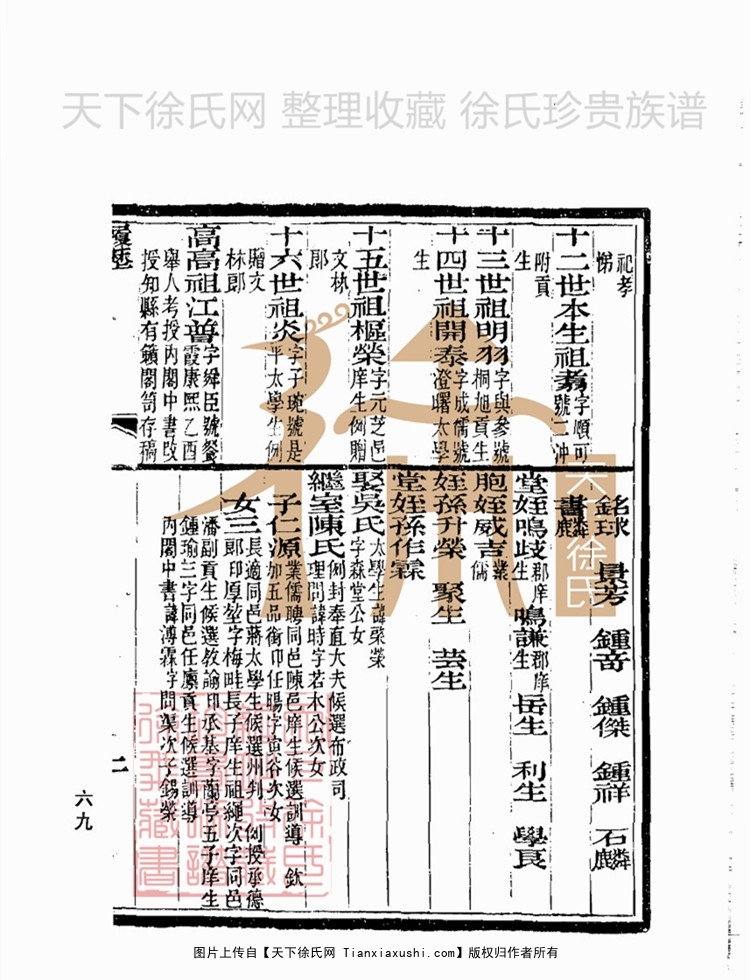 天下徐氏网 整理收藏 徐氏珍贵族谱
祀孝
悌
十二世本生祖耇字順可
號二冲
附貢
生
十三世祖明羽字與參號
桐旭貢生
十四世祖開泰字成儒號
澄曙太學
生
十五世祖樞榮字元芝邑
庠生例贈
文林
郎
十六世祖炎字子琬號是
平太學生例
贈文
林郎
高高祖江普字舜臣號餐
霞康熙乙酉
舉人考授內閣中書改
授知縣有籟閣笥存稿
履歷
銘球 景芳 鍾奇 鍾傑 鍾祥 石麟
書麟
堂姪鳴歧郡庠生 鳴謙郡庠生 岳生 利生 學良
胞姪威吉業儒
姪孫升榮 聚生 芸生
堂姪孫作霖
娶吳氏太學生諱聚榮
字森堂公女
繼室陳氏例封奉直大夫候選布政司
理問諱時字若木公次女
子仁源業儒聘同邑陳邑庠生候選訓導 欽
加五品銜印任暘字寅谷次女
女三長適同邑蔣太學生候選州判 例授承德
郎印厚堃字梅畦長子庠生祖繩次字同邑
潘副貢生候選教諭印丞基字蘭亭五子庠生
鍾瑜三字同邑任廩貢生候選訓導
內閣中書諱溥霖字問渠次子錫榮
二
六九
天下徐氏
图片上传自【天下徐氏网 Tianxiaxushi.com】版权归作者所有